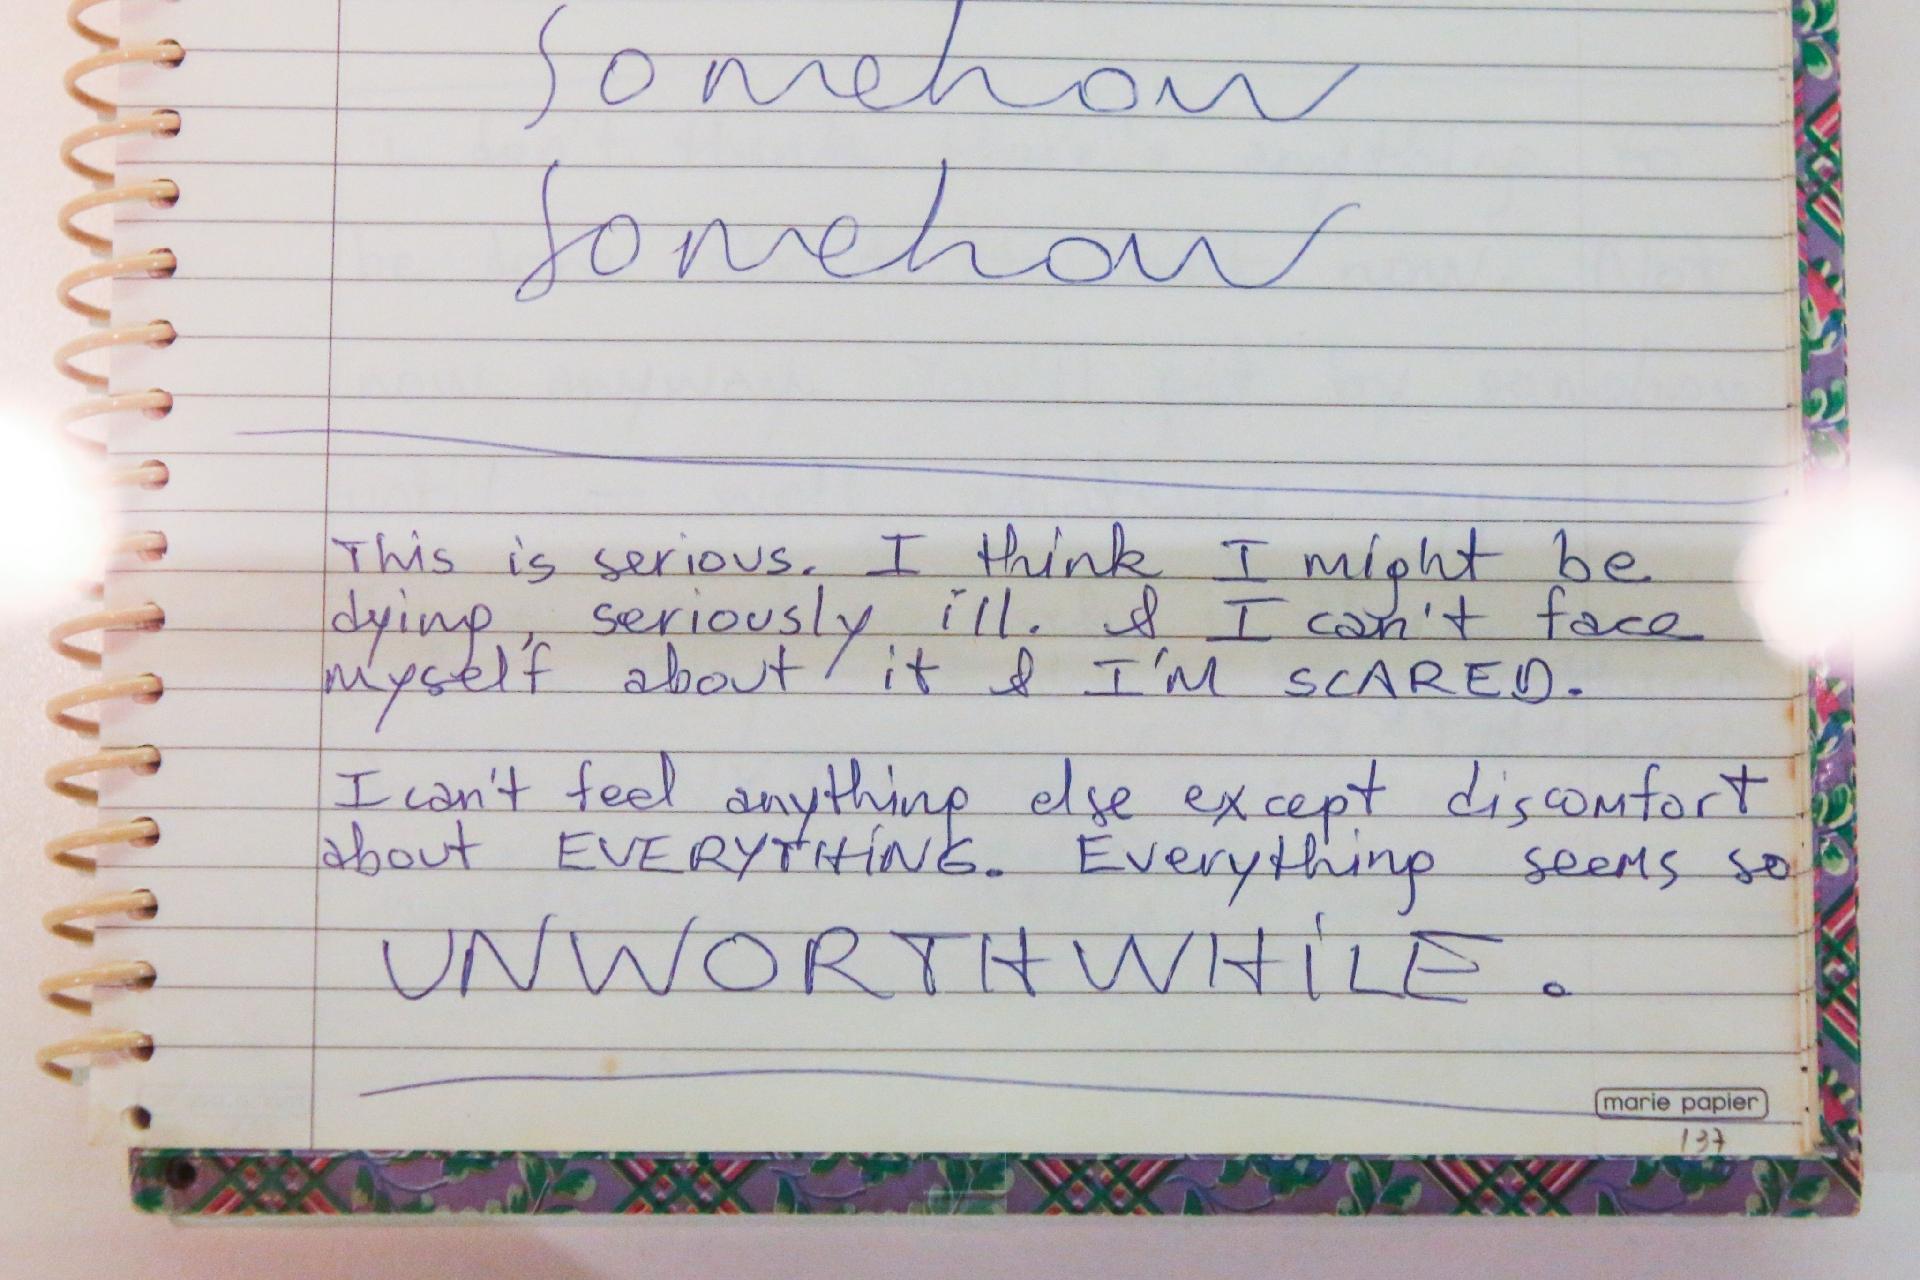 Somehow
Somehow
This is serious. I think I might be
dying, seriously ill. & I can't face
myself about it & I'M SCARED.
I can't feel anything else except discomfort
about EVERYTHING. Everything seems so
UNWORTHWHILE.
marie papier
137